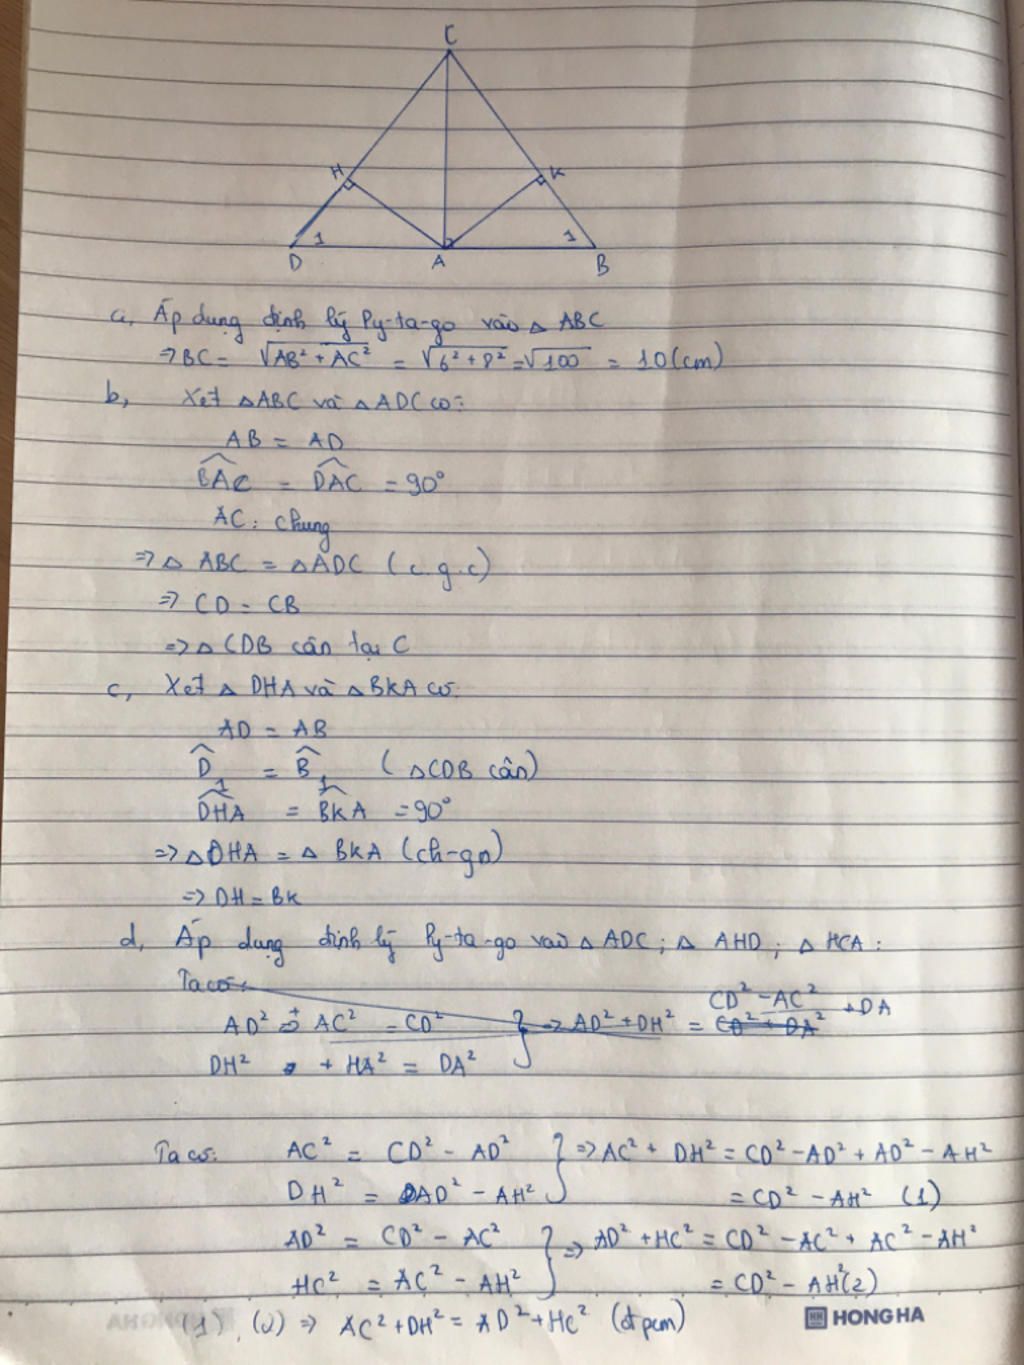 C
H K
1 1
D A B
a, Áp dụng định lý Py-ta-go vào △ ABC
=> BC = √AB² + AC² = √6² + 8² = √100 = 10 (cm)
b, Xét △ABC và △ADC có:
AB = AD
BAC = DAC = 90°
AC: chung
=> △ ABC = △ADC (c.g.c)
=> CD = CB
=> △ CDB cân tại C
c, Xét △ DHA và △ BKA có:
AD = AB
D₁ = B₁ (△CDB cân)
DHA = BKA = 90°
=> △DHA = △ BKA (ch-gn)
=> DH = BK
d, Áp dụng định lý Py-ta-go vào △ ADC; △ AHD; △ HCA:
Ta có:
AD² + AC² = CD² } => AD² + DH² = CD² - AC² + DA
DH² + HA² = DA²
Ta có: AC² = CD² - AD² } => AC² + DH² = CD² - AD² + AD² - AH²
DH² = AD² - AH² = CD² - AH² (1)
AD² = CD² - AC² } => AD² + HC² = CD² - AC² + AC² - AH²
HC² = AC² - AH² = CD² - AH² (2)
(1), (2) => AC² + DH² = AD² + HC² (đpcm)
HONG HA